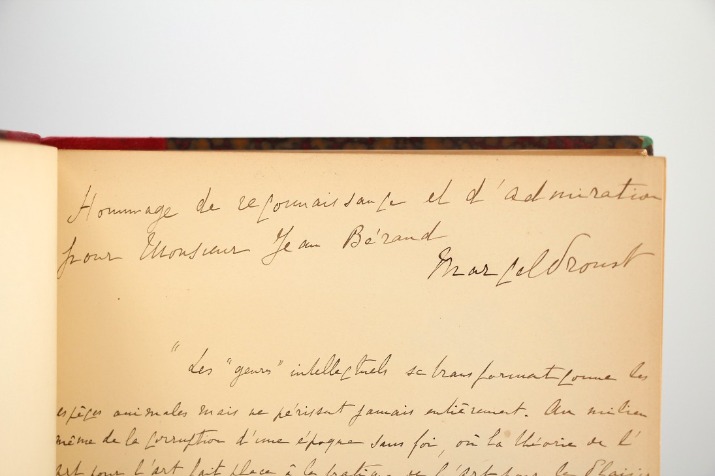 Hommage de reconnaissance et d'admiration
pour Monsieur Jean Béraud
Marcel Proust
"Les "genres" intellectuels se transforment comme les
espèces animales mais ne périssent jamais entièrement. Au milieu
même de la corruption d'une époque sans foi, où la théorie de l'
art pour l'art fait place à la pratique de l'art pour le Plaisir